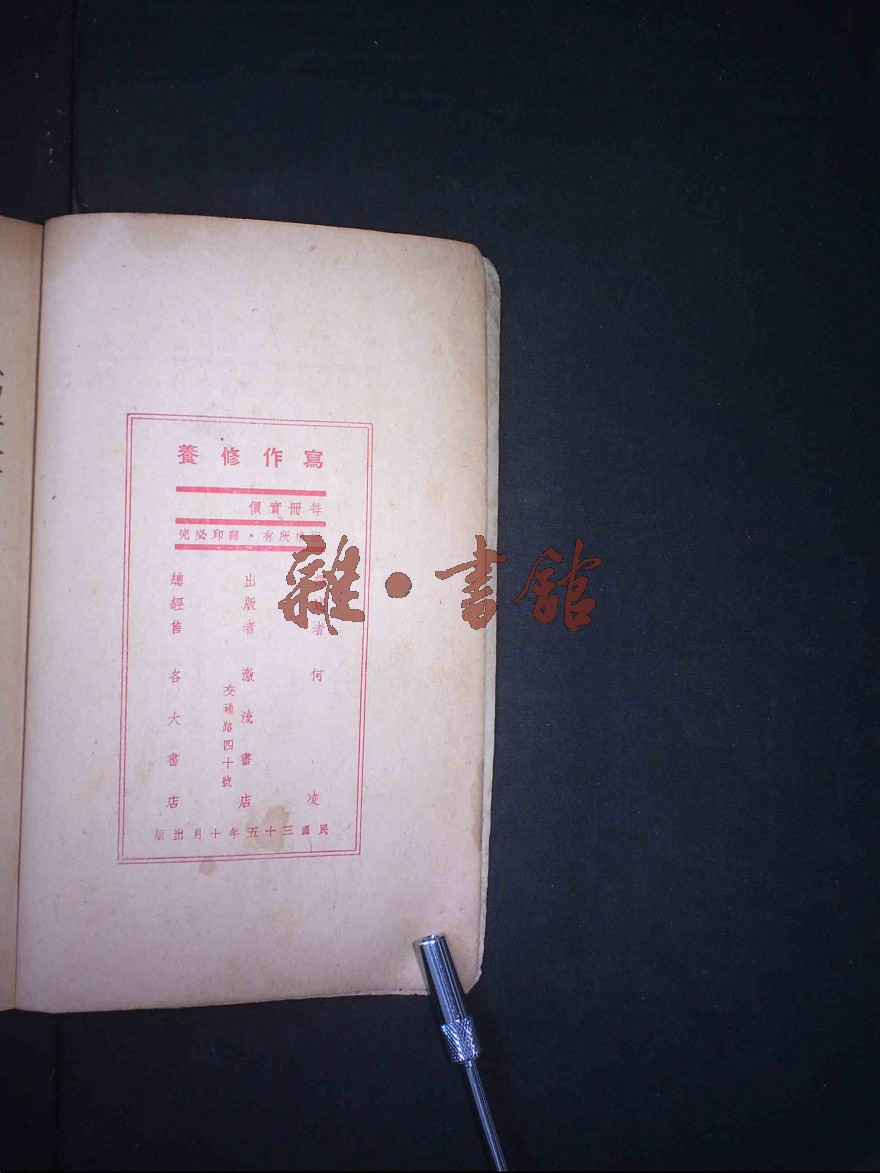 寫作修養
每冊實價
所有・翻印必究
者 何凌
出版者 激流書店
交通路四十號
總經售 各大書店
民國三十五年十月出版
雜・書館